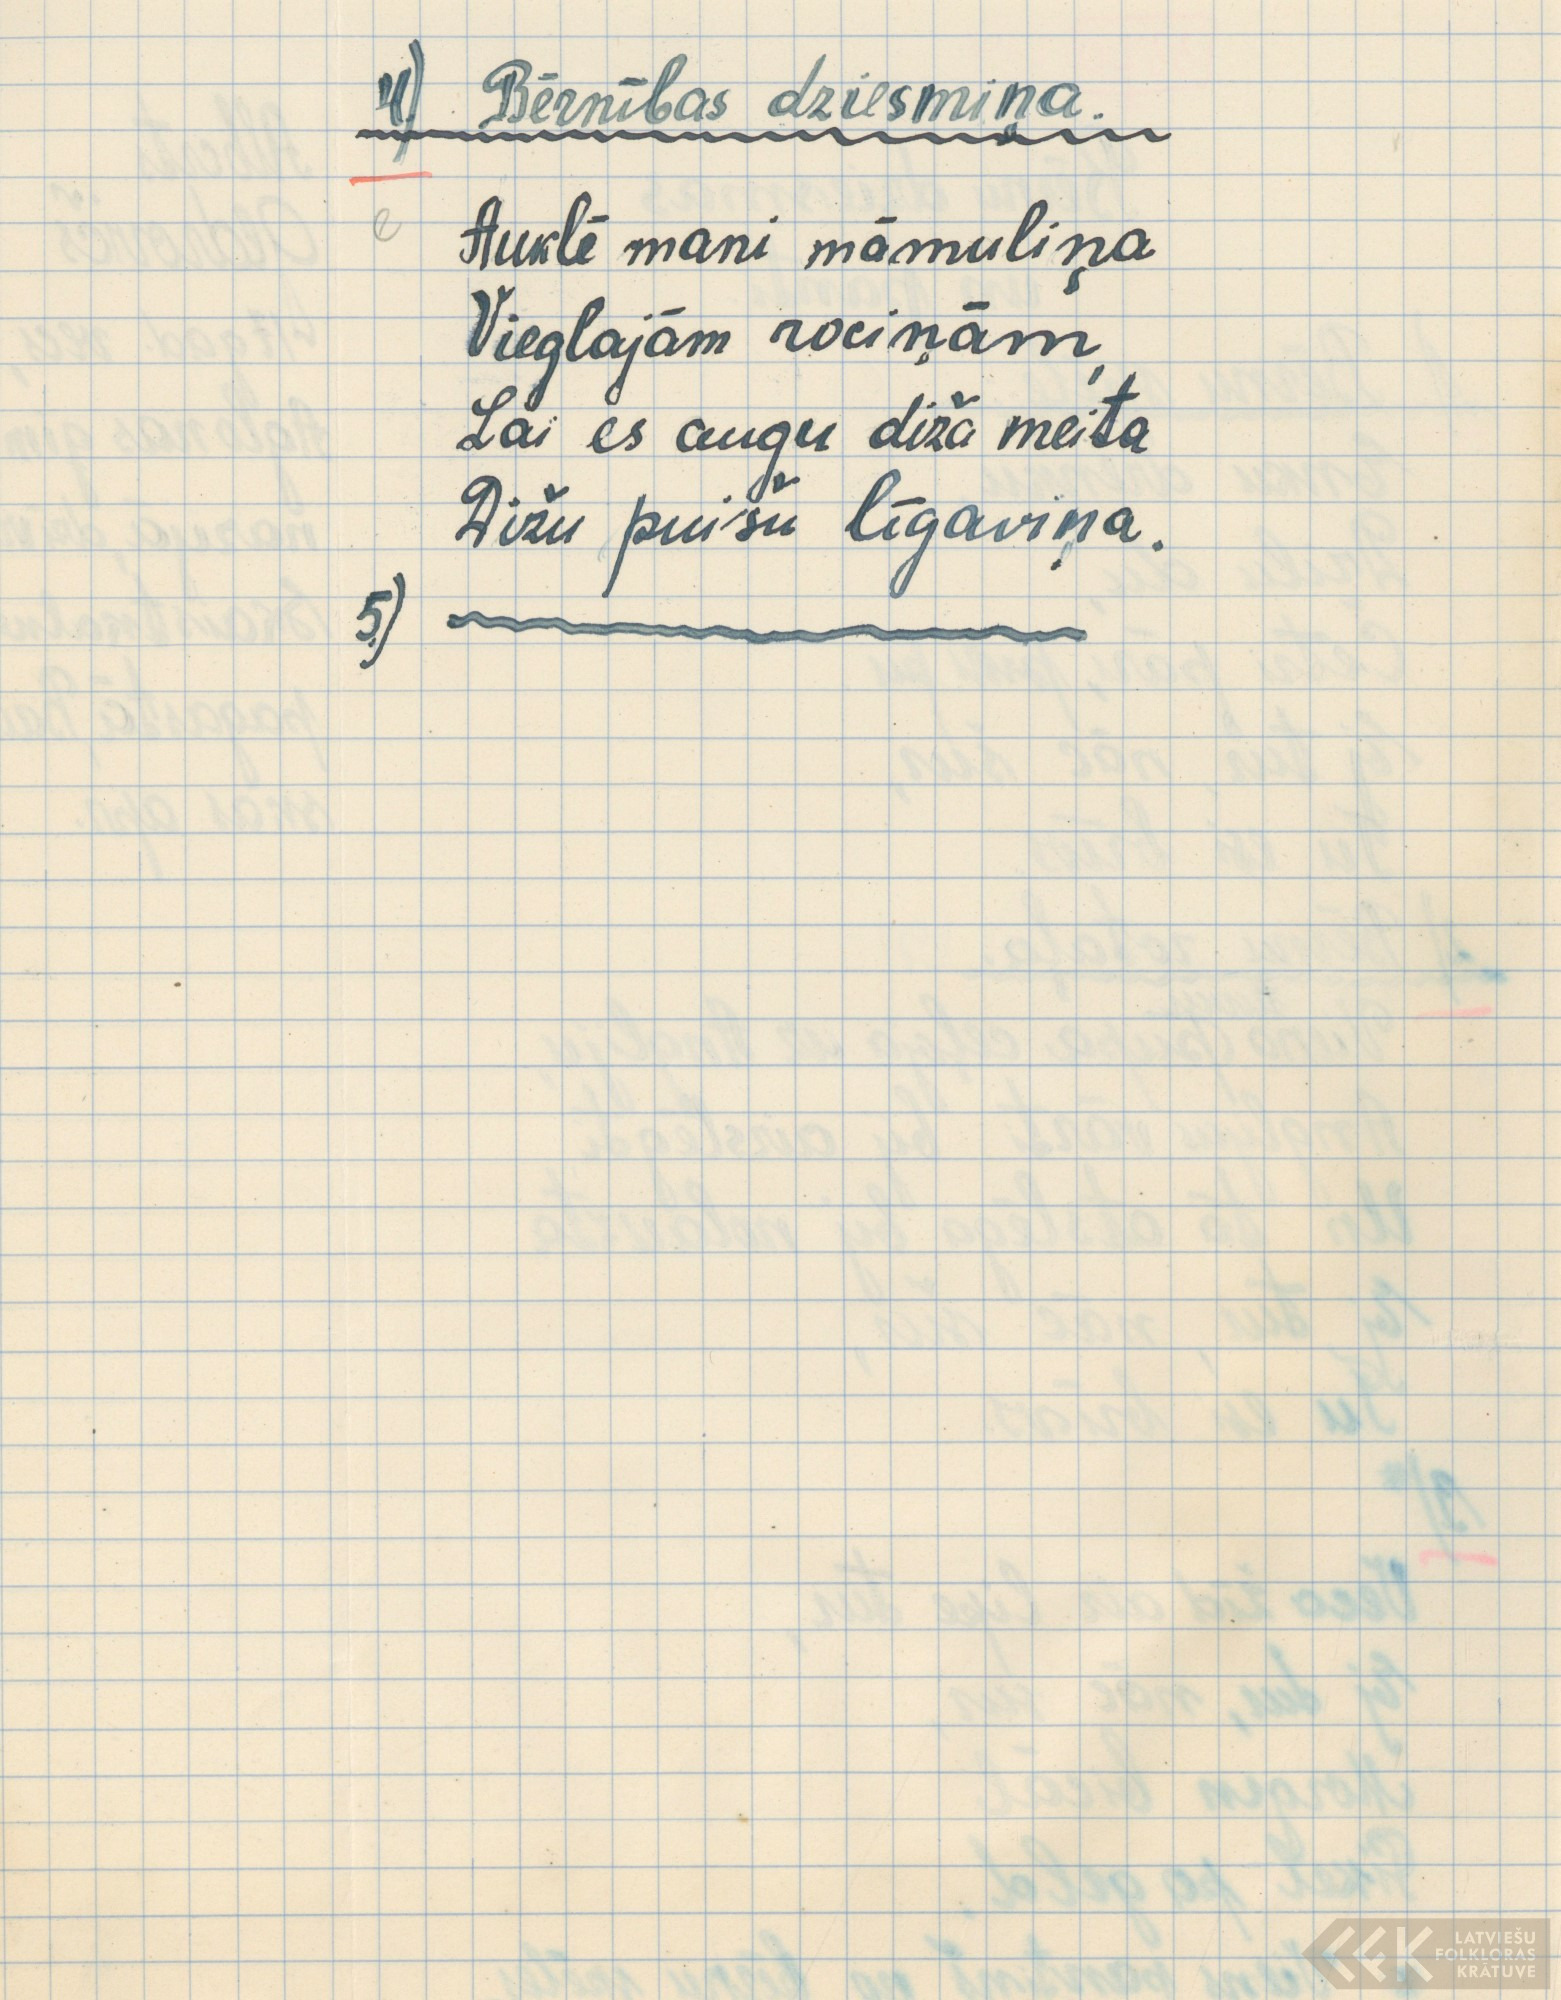 4) Bērnības dziesmiņa.
Auklē mani māmuliņa
Vieglajām rociņām,
Lai es augu diža meita
Dižu puišu līgaviņa.
5)
LATVIEŠU
FOLKLORAS
KRĀTUVE